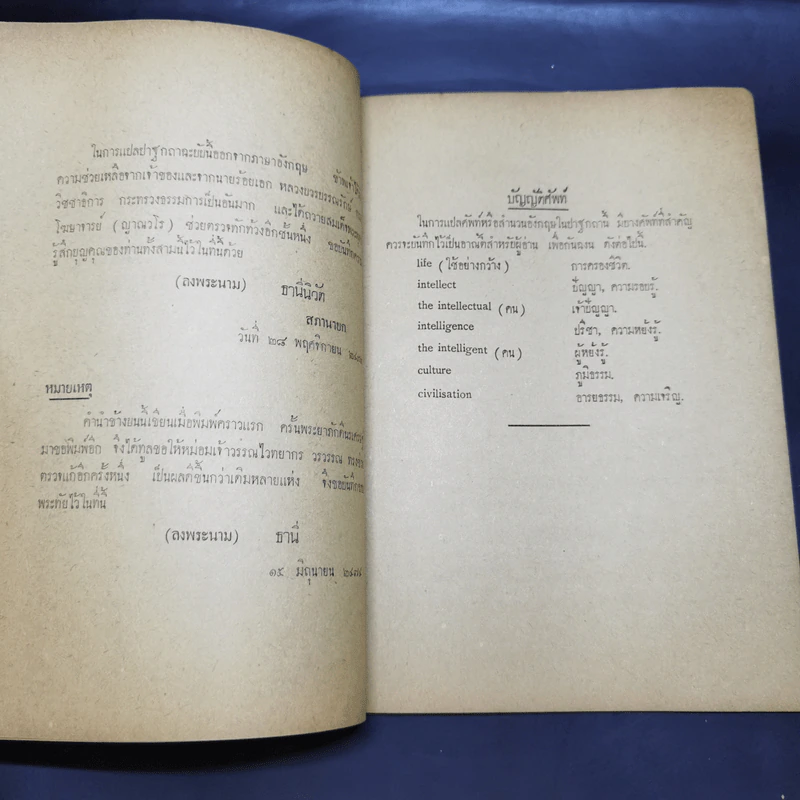 ในการแปลปาฐกถาฉะบับนี้ออกจากภาษาอังกฤษ
ความช่วยเหลือจากเจ้าของและจากนายร้อยเอก หลวงบวรบรรณรักษ์
วิชชาธิการ กระทรวงธรรมการเป็นอันมาก และได้ถวายสมเด็จพระ
โฆษาจารย์ (ญาณวโร) ช่วยตรวจทักท้วงอีกชั้นหนึ่ง
รู้สึกบุญคุณของท่านทั้งสามนี้ไว้ในที่นี้ด้วย
(ลงพระนาม) ธานีนิวัต
สภานายก
วันที่ ๒๘ พฤศจิกายน
หมายเหตุ
คำนำข้างบนนี้เขียนเมื่อพิมพ์คราวแรก ครั้นพระยาภักดีนรเศรษฐ
มาขอพิมพ์อีก จึงได้ทูลขอให้หม่อมเจ้าวรรณไวทยากร วรวรรณ ทรงช่วย
ตรวจแก้อีกครั้งหนึ่ง เป็นผลดีขึ้นกว่าเดิมหลายแห่ง จึงขอบันทึก
พระทัยไว้ในที่นี้
(ลงพระนาม) ธานี
๑๕ มิถุนายน ๒๔๗๘
บัญญัติศัพท์
ในการแปลศัพท์หรือสำนวนอังกฤษในปาฐกถานี้ มีบางศัพท์ที่สำคัญ
ควรจะบันทึกไว้เป็นอาณัติสำหรับผู้อ่าน เพื่อกันฉงน ดังต่อไปนี้.
life (ใช้อย่างกว้าง) การครองชีวิต.
intellect ปัญญา, ความรอบรู้.
the intellectual (คน) เจ้าปัญญา.
intelligence ปรีชา, ความหยั่งรู้.
the intelligent (คน) ผู้หยั่งรู้.
culture ภูมิธรรม.
civilisation อารยธรรม, ความเจริญ.